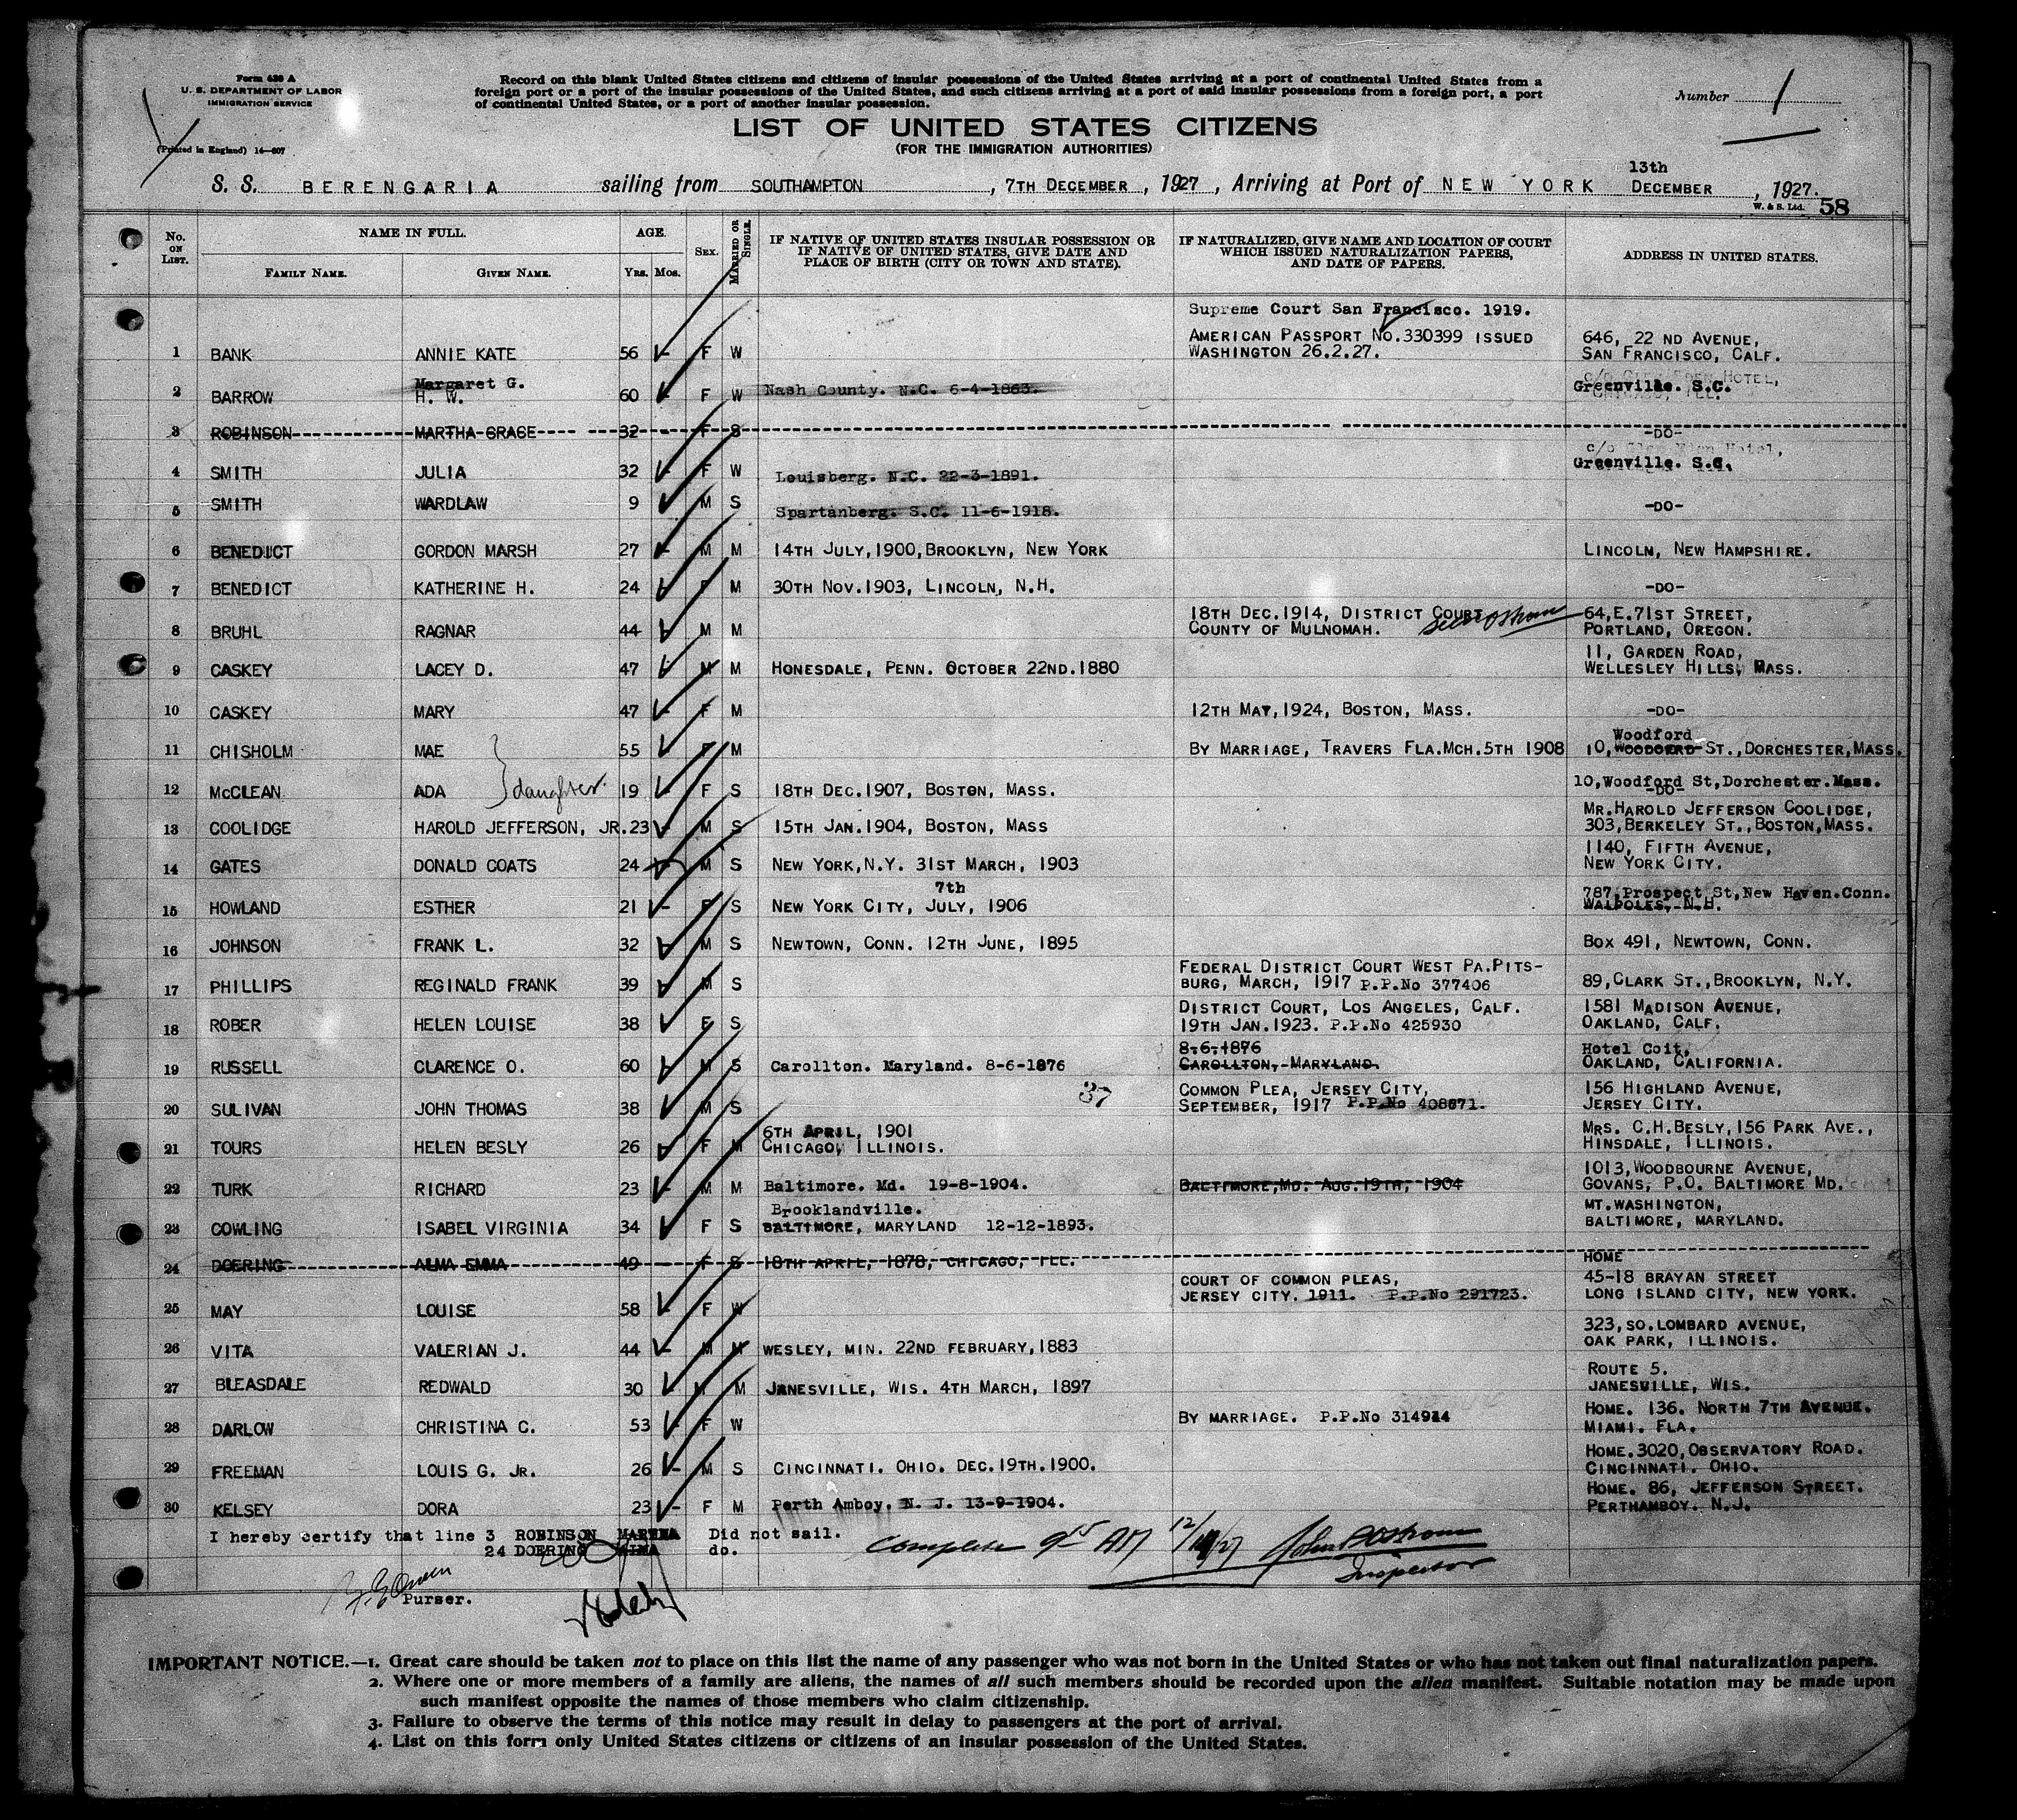 Form 630 A
U. S. DEPARTMENT OF LABOR
IMMIGRATION SERVICE
(Printed in England) 14—607
Record on this blank United States citizens and citizens of insular possessions of the United States arriving at a port of continental United States from a
foreign port or a port of the insular possessions of the United States, and such citizens arriving at a port of said insular possessions from a foreign port, a port
of continental United States, or a port of another insular possession.
Number 1
LIST OF UNITED STATES CITIZENS
(FOR THE IMMIGRATION AUTHORITIES)
S. S. BERENGARIA sailing from SOUTHAMPTON, 7TH DECEMBER, 1927, Arriving at Port of NEW YORK 13th DECEMBER, 1927.
W. & S. Ltd. 58
No. ON LIST. NAME IN FULL. AGE. SEX. MARRIED OR SINGLE. IF NATIVE OF UNITED STATES INSULAR POSSESSION OR IF NATIVE OF UNITED STATES, GIVE DATE AND PLACE OF BIRTH (CITY OR TOWN AND STATE). IF NATURALIZED, GIVE NAME AND LOCATION OF COURT WHICH ISSUED NATURALIZATION PAPERS, AND DATE OF PAPERS. ADDRESS IN UNITED STATES.
FAMILY NAME. GIVEN NAME. YRS. MOS.
Supreme Court San Francisco. 1919.
AMERICAN PASSPORT NO.330399 ISSUED 646, 22 ND AVENUE,
1 BANK ANNIE KATE 56 - F W WASHINGTON 26.2.27. SAN FRANCISCO, CALF.
Margaret G.
2 BARROW H. W. 60 - F W Nash County. N.C. 6-4-1863. Greenville. S.C.
3 ROBINSON MARTHA GRACE 32 - F S -DO-
4 SMITH JULIA 32 - F W Louisberg. N.C. 22-3-1891. Greenville. S.C.
5 SMITH WARDLAW 9 - M S Spartanberg. S.C. 11-6-1918. -DO-
6 BENEDICT GORDON MARSH 27 - M M 14TH JULY,1900,BROOKLYN, NEW YORK LINCOLN, NEW HAMPSHIRE.
7 BENEDICT KATHERINE H. 24 - F M 30TH NOV.1903, LINCOLN, N.H. -DO-
18TH DEC.1914, DISTRICT COURT 64,E.71ST STREET,
8 BRUHL RAGNAR 44 - M M COUNTY OF MULNOMAH. PORTLAND, OREGON.
11, GARDEN ROAD,
9 CASKEY LACEY D. 47 - M M HONESDALE, PENN. OCTOBER 22ND.1880 WELLESLEY HILLS, MASS.
10 CASKEY MARY 47 - F M 12TH MAY,1924, BOSTON, MASS. -DO-
Woodford
11 CHISHOLM MAE 55 F M BY MARRIAGE, TRAVERS FLA.MCH.5TH 1908 10, WOODOERD ST.,DORCHESTER,MASS.
10,Woodford St,Dorchester.Mass.
12 MCCLEAN ADA daughter 19 - F S 18TH DEC.1907, BOSTON, MASS. -DO-
MR.HAROLD JEFFERSON COOLIDGE,
13 COOLIDGE HAROLD JEFFERSON, JR. 23 - M S 15TH JAN.1904, BOSTON, MASS 303,BERKELEY ST.,BOSTON,MASS.
1140, FIFTH AVENUE,
14 GATES DONALD COATS 24 - M S NEW YORK,N.Y. 31ST MARCH, 1903 NEW YORK CITY.
7th 787,Prospect St,New Haven.Conn.
15 HOWLAND ESTHER 21 - F S NEW YORK CITY, JULY, 1906 WALPOLES, N.H.
16 JOHNSON FRANK L. 32 - M S NEWTOWN, CONN. 12TH JUNE, 1895 BOX 491, NEWTOWN, CONN.
FEDERAL DISTRICT COURT WEST PA.PITS-
17 PHILLIPS REGINALD FRANK 39 - M S BURG, MARCH, 1917 P.P.NO 377406 89,CLARK ST.,BROOKLYN, N.Y.
DISTRICT COURT, LOS ANGELES, CALF. 1581 MADISON AVENUE,
18 ROBER HELEN LOUISE 38 - F S 19TH JAN.1923. P.P.NO 425930 OAKLAND, CALF.
8.6.1876 Hotel Coit,
19 RUSSELL CLARENCE O. 60 - M S Carollton. Maryland. 8-6-1876 CAROLLTON, MARYLAND. OAKLAND, CALIFORNIA.
37 COMMON PLEA, JERSEY CITY, 156 HIGHLAND AVENUE,
20 SULIVAN JOHN THOMAS 38 - M S SEPTEMBER, 1917 P.P.No 408671. JERSEY CITY.
6TH APRIL, 1901 MRS. C.H.BESLY,156 PARK AVE.,
21 TOURS HELEN BESLY 26 - F M CHICAGO, ILLINOIS. HINSDALE, ILLINOIS.
1013,WOODBOURNE AVENUE,
22 TURK RICHARD 23 - M M Baltimore. Md. 19-8-1904. BALTIMORE,MD. AUG.19TH, 1904 GOVANS, P.O. BALTIMORE MD.
Brooklandville. MT.WASHINGTON,
23 COWLING ISABEL VIRGINIA 34 - F S BALTIMORE, MARYLAND 12-12-1893. BALTIMORE, MARYLAND.
24 DOERING ALMA EMMA 49 - F S 18TH APRIL, 1878, CHICAGO, ILL. HOME
COURT OF COMMON PLEAS, 45-18 BRAYAN STREET
25 MAY LOUISE 58 - F W JERSEY CITY. 1911. P.P.No 291723. LONG ISLAND CITY, NEW YORK.
323,SO.LOMBARD AVENUE,
26 VITA VALERIAN J. 44 - M M WESLEY, MIN. 22ND FEBRUARY,1883 OAK PARK, ILLINOIS.
ROUTE 5.
27 BLEASDALE REDWALD 30 - M M JANESVILLE, WIS. 4TH MARCH, 1897 JANESVILLE, WIS.
HOME. 136. NORTH 7TH AVENUE.
28 DARLOW CHRISTINA C. 53 - F W BY MARRIAGE. P.P.NO 314914 MIAMI. FLA.
HOME.3020,OBSERVATORY ROAD.
29 FREEMAN LOUIS G. JR. 26 - M S CINCINNATI. OHIO. DEC.19TH.1900. CINCINNATI. OHIO.
HOME. 86, JEFFERSON STREET.
30 KELSEY DORA 23 - F M Perth Amboy. N. J. 13-9-1904. PERTHAMBOY. N.J.
I hereby certify that line 3 ROBINSON MARTHA Did not sail.
24 DOERING ALMA do.
Complete 9 15 AM 12/14/27 John Oshom
Inspector
Purser.
IMPORTANT NOTICE.—1. Great care should be taken not to place on this list the name of any passenger who was not born in the United States or who has not taken out final naturalization papers.
2. Where one or more members of a family are aliens, the names of all such members should be recorded upon the alien manifest. Suitable notation may be made upon
such manifest opposite the names of those members who claim citizenship.
3. Failure to observe the terms of this notice may result in delay to passengers at the port of arrival.
4. List on this form only United States citizens or citizens of an insular possession of the United States.